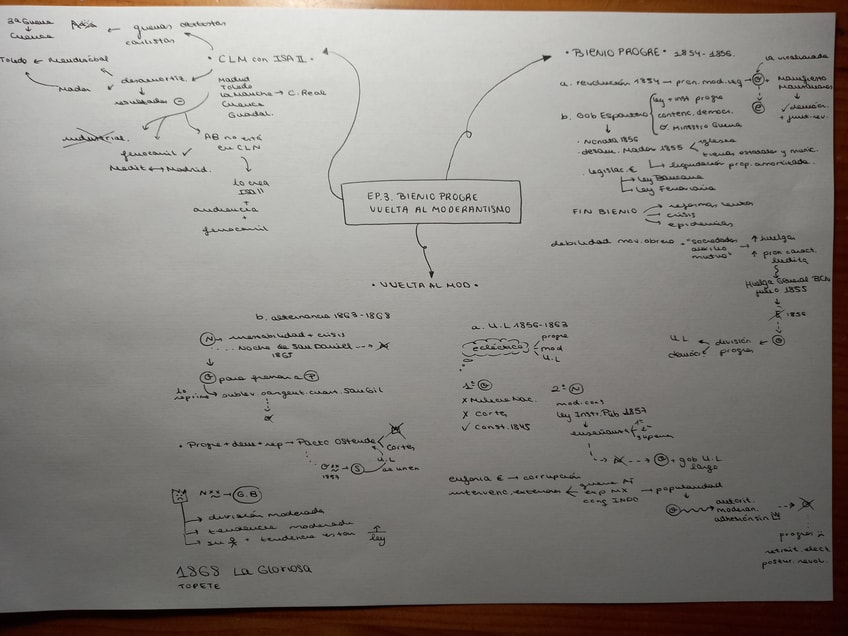 EP.3. BIENIO PROGRE
VUELTA AL MODERANTISMO
• CLM con ISA II •
guerras carlistas
carlistas
3ª Guerra
Cuenca
desamortiz.
Mendizábal
Toledo
Madoz
resultados
Madrid
Toledo
La Mancha → C. Real
Cuenca
Guadal.
industrial
ferrocarril ✓
Medit ↔ Madrid
AB no está
en CLM
lo crea
ISA II
+
audiencia
+
ferrocarril
• BIENIO PROGRE • 1854-1856
a. revolución 1854 → pron. mod. izq →
la vicalvarada
Manifiesto
Manzanares
✓ demócr.
+ junt. rev.
b. Gob Espartero
ley + inst progre
contenc. democr.
O' Ministro Guerra
• Nonata 1856
• desam. Madoz 1855
iglesia
bienes estatales y munic.
→ liquidación prop. amortizada.
• legislac. €
→ Ley Bancaria
→ Ley Ferroviaria
FIN BIENIO
→ reformas lentas
→ crisis
→ epidemias
debilidad mov. obrero → "sociedades
auxilio
mutuo"
↑ huelgas
↑ pron. caract.
ludita
Huelga General BCN
julio 1855
1856
división
progres
U.L
demócr.
• VUELTA AL MOD •
a. U.L 1856-1863
ecléctico
progre
mod
U.L
1º O
X Milicia Nac.
X Cortes
✓ Const. 1845
2º N
mod. cons
Ley Instr. Pub 1857
enseñanza
1ª
2ª
superior
+ gob U.L
largo
euforia € → corrupción
intervenc. exteriores
guerra AF
exp MX
conq INDO
→ popularidad
autorit.
moderan.
adhesión sin
progres
retrait. elect
postur. revol.
b. alternancia 1863-1868
N → inestabilidad + crisis
Noche de San Daniel
1865
O para frenar a P
lo reprime
sublev sargent. cuart. San Gil
• Progre + dem + rep → Pacto Ostende
Cortes
U.L
se unen
O' ††
1867
S
N ††
G.B
→ división moderada
→ tendencia moderada
↑
ley
1868 La Gloriosa
TOPETE